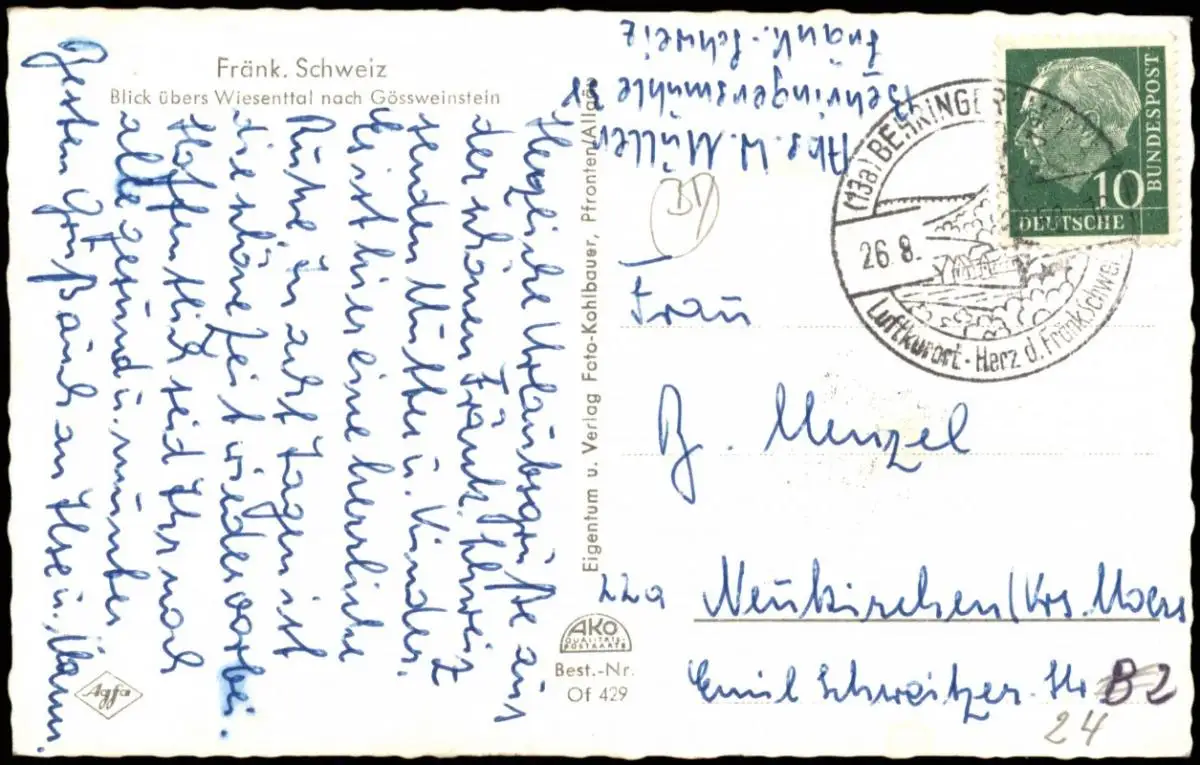 Fränk. Schweiz
Blick übers Wiesenttal nach Gössweinstein
Herzliche Urlaubsgrüße aus
der schönen Fränk. Schweiz
senden Mutter u. Kinder.
Es ist hier eine herrliche
Ruhe in acht Tagen ist
die schöne Zeit wieder vorbei.
Hoffentlich seid Ihr noch
alle gesund u. munter
Besten Gruß auch an Ilse u. Mann.
Agfa
Eigentum u. Verlag Foto-Kohlbauer, Pfronten/Allgäu
AKO
QUALITÄTS-
POSTKARTE
Best.-Nr.
Of 429
Abs. W. Müller
Behringersmühle 28
Fränk.-Schweiz
BY
(13a) BEHRINGER
26.8.
Luftkurort - Herz d. Fränk Schwei
10
DEUTSCHE
BUNDESPOST
Frau
B. Menzel
22a Neukirchen/Krs. Moers
Emil Schweitzer. Str B2
24